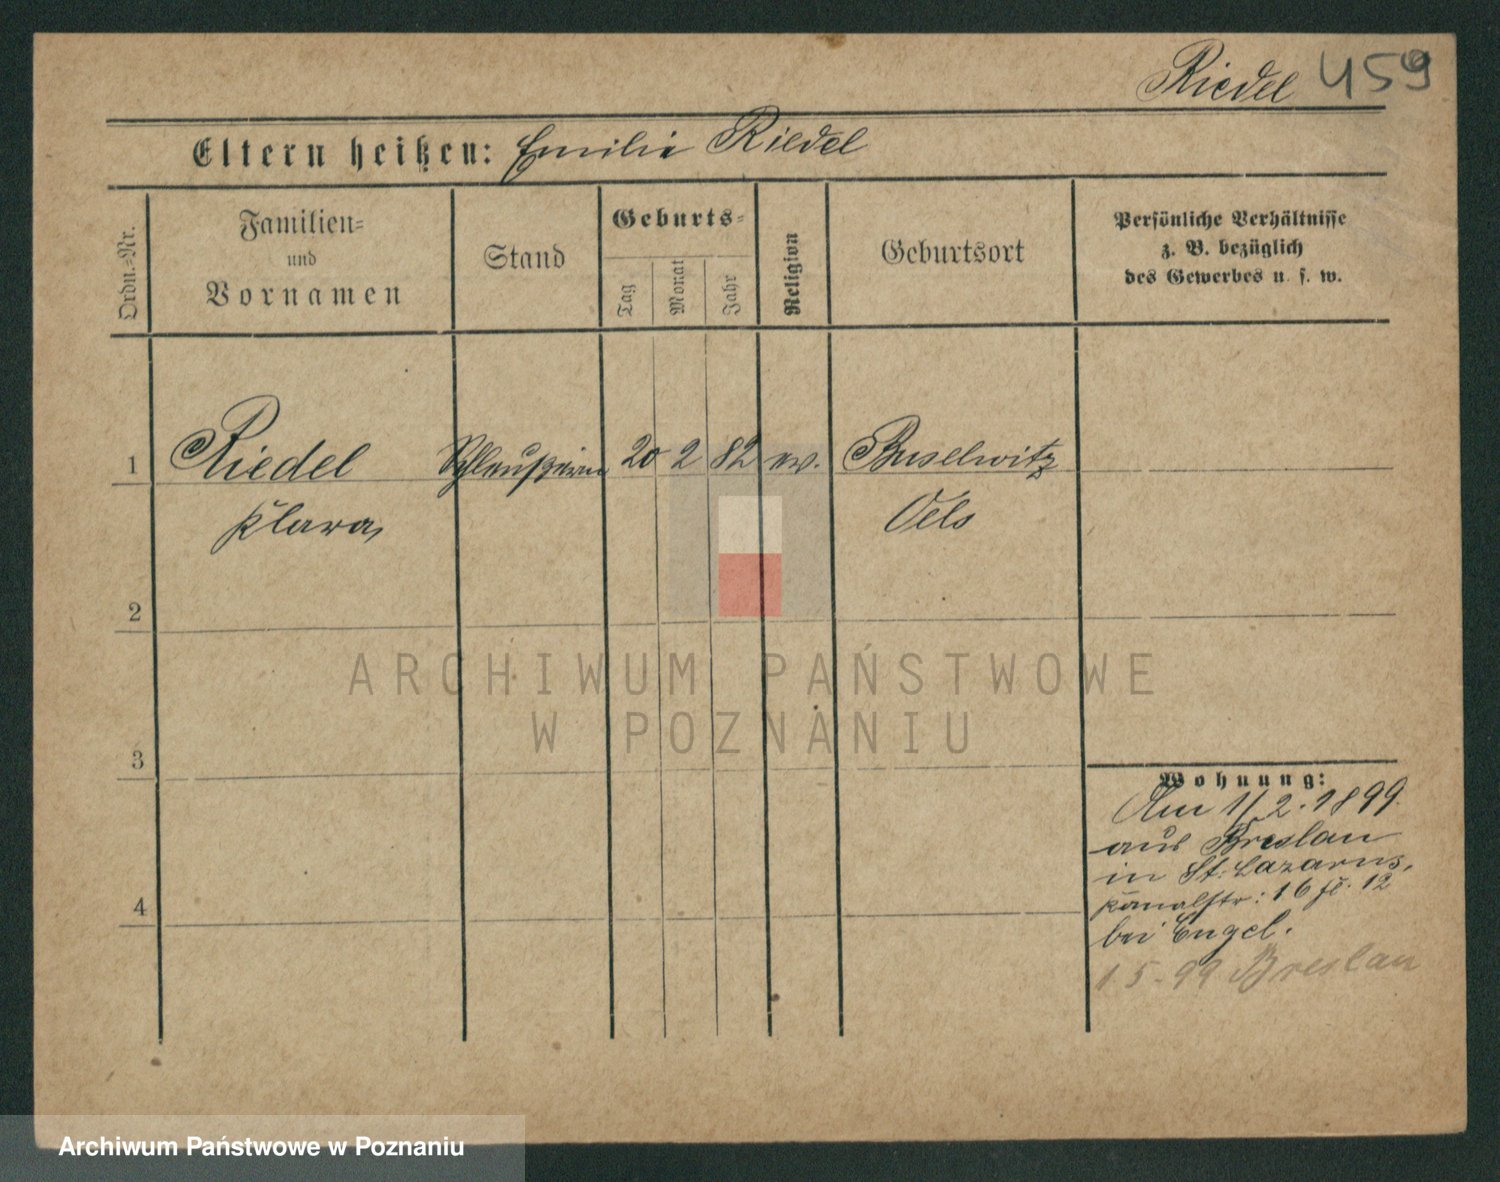 Riedel 459
Eltern heißen: Emilie Riedel
Ordn.-Nr.
Familien-
und
Vornamen
Stand
Geburts-
Tag
Monat
Jahr
Religion
Geburtsort
Persönliche Verhältnisse
z. B. bezüglich
des Gewerbes u. s. w.
1 Riedel 20 2 82 ev. Buselwitz
Klara Oels
2
3
4
Wohnung:
Am 1/2. 1899.
aus Breslau
in St. Lazarus,
Kanalstr: 16 12
bei Engel.
1 5-99 Breslau
ARCHIWUM PAŃSTWOWE
W POZNANIU
Archiwum Państwowe w Poznaniu